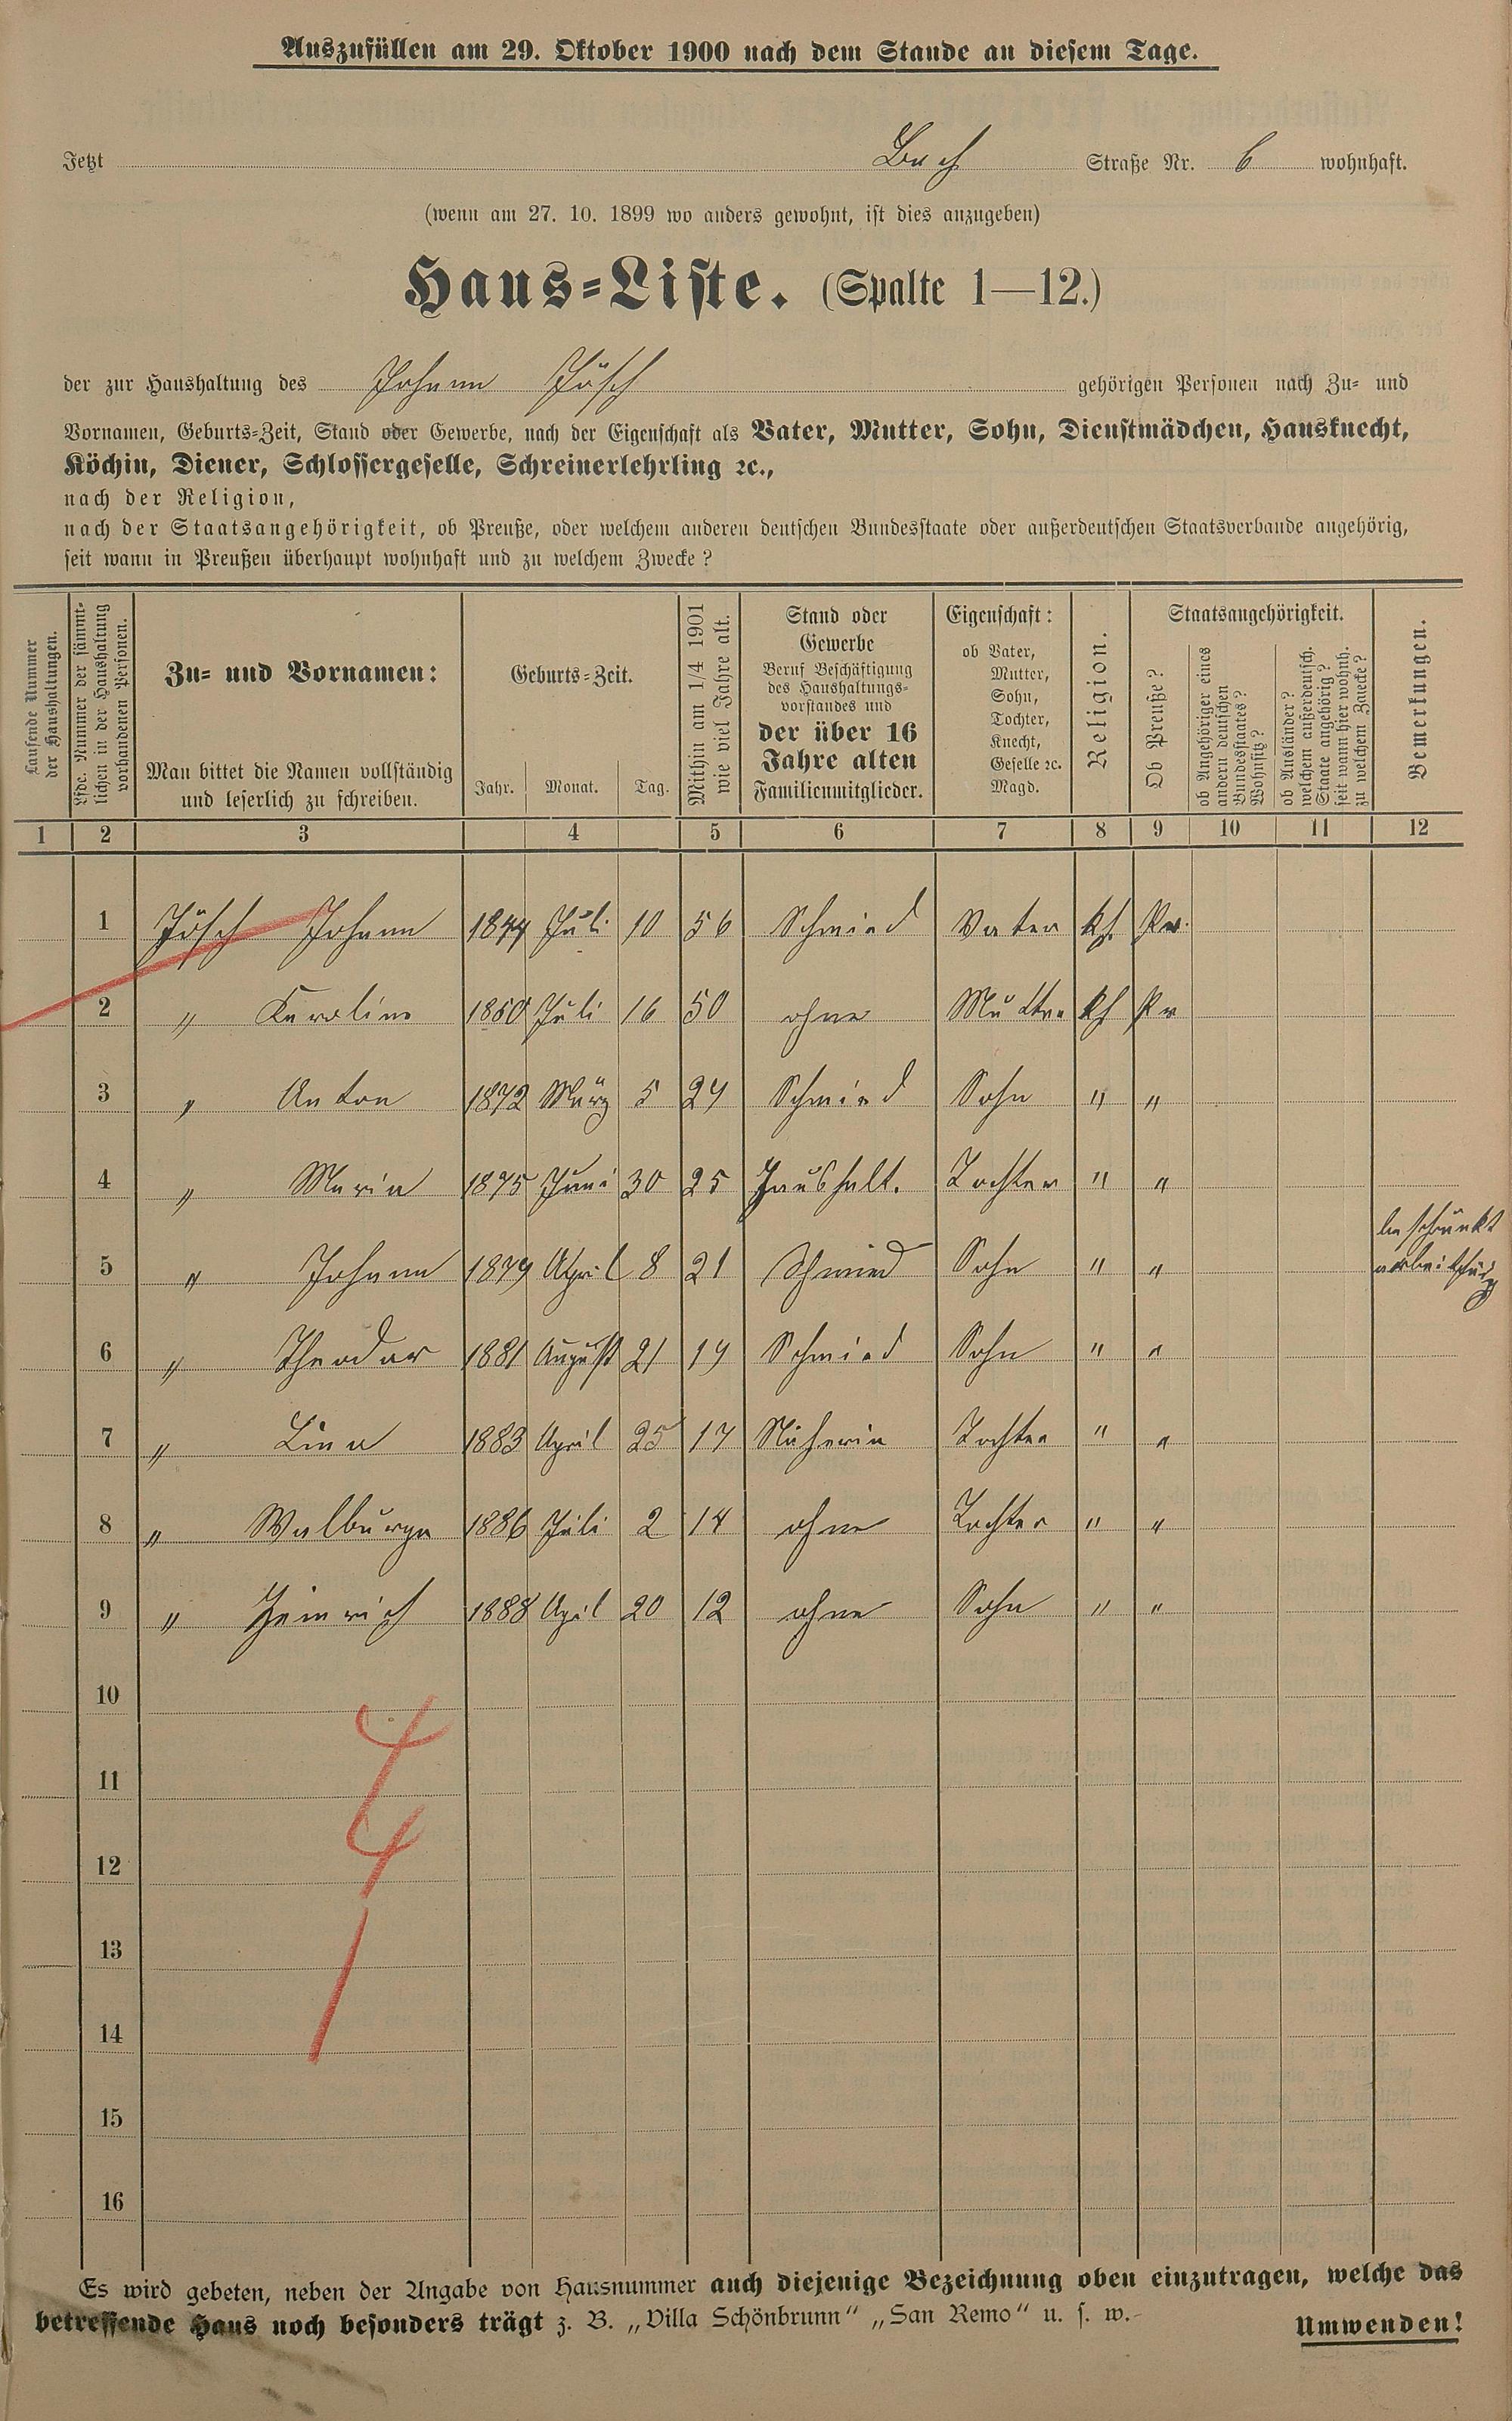 Auszufüllen am 29. Oktober 1900 nach dem Stande an diesem Tage.
Jetzt Bach Straße Nr. 6 wohnhaft.
(wenn am 27. 10. 1899 wo anders gewohnt, ist dies anzugeben)
Haus=Liste. (Spalte 1—12.)
der zur Haushaltung des Johann Jösch gehörigen Personen nach Zu= und
Vornamen, Geburts=Zeit, Stand oder Gewerbe, nach der Eigenschaft als Vater, Mutter, Sohn, Dienstmädchen, Hausknecht,
Köchin, Diener, Schlossergeselle, Schreinerlehrling ꝛc.,
nach der Religion,
nach der Staatsangehörigkeit, ob Preuße, oder welchem anderen deutschen Bundesstaate oder außerdeutschen Staatsverbande angehörig,
seit wann in Preußen überhaupt wohnhaft und zu welchem Zwecke?
Laufende Nummer
der Haushaltungen.
Lfde. Nummer der sämmt=
lichen in der Haushaltung
vorhandenen Personen.
Zu= und Vornamen:
Man bittet die Namen vollständig
und leserlich zu schreiben.
Geburts=Zeit.
Jahr. Monat. Tag.
Mithin am 1/4 1901
wie viel Jahre alt.
Stand oder
Gewerbe
Beruf Beschäftigung
des Haushaltungs=
vorstandes und
der über 16
Jahre alten
Familienmitglieder.
Eigenschaft:
ob Vater,
Mutter,
Sohn,
Tochter,
Knecht,
Geselle ꝛc.
Magd.
Religion.
Staatsangehörigkeit.
Ob Preuße?
ob Angehöriger eines
andern deutschen
Bundesstaates?
Wohnsitz?
ob Ausländer?
welchem außerdeutsch.
Staate angehörig?
seit wann hier wohnh.
zu welchem Zwecke?
Bemerkungen.
1 2 3 4 5 6 7 8 9 10 11 12
1 Jösch Johann 1844 Juli 10 56 Schmied Vater kh. Pr.
2 " Karoline 1850 Juli 16 50 ohne Mutter kh Pr
3 " Anton 1872 März 5 29 Schmied Sohn " "
4 " Maria 1875 Juni 30 25 Haushalt. Tochter " "
5 " Johann 1879 April 8 21 Schmied Sohn " " beschränkt
arbeitsfähig
6 " Theodor 1881 August 21 19 Schmied Sohn " "
7 " Lina 1883 April 25 17 Näherin Tochter " "
8 " Walburga 1886 Juli 2 14 ohne Tochter " "
9 " Heinrich 1888 April 20 12 ohne Sohn " "
10
11
12
13
14
15
16
4
4
1
Es wird gebeten, neben der Angabe von Hausnummer auch diejenige Bezeichnung oben einzutragen, welche das
betreffende Haus noch besonders trägt z. B. „Villa Schönbrunn“ „San Remo“ u. s. w.
Umwenden!